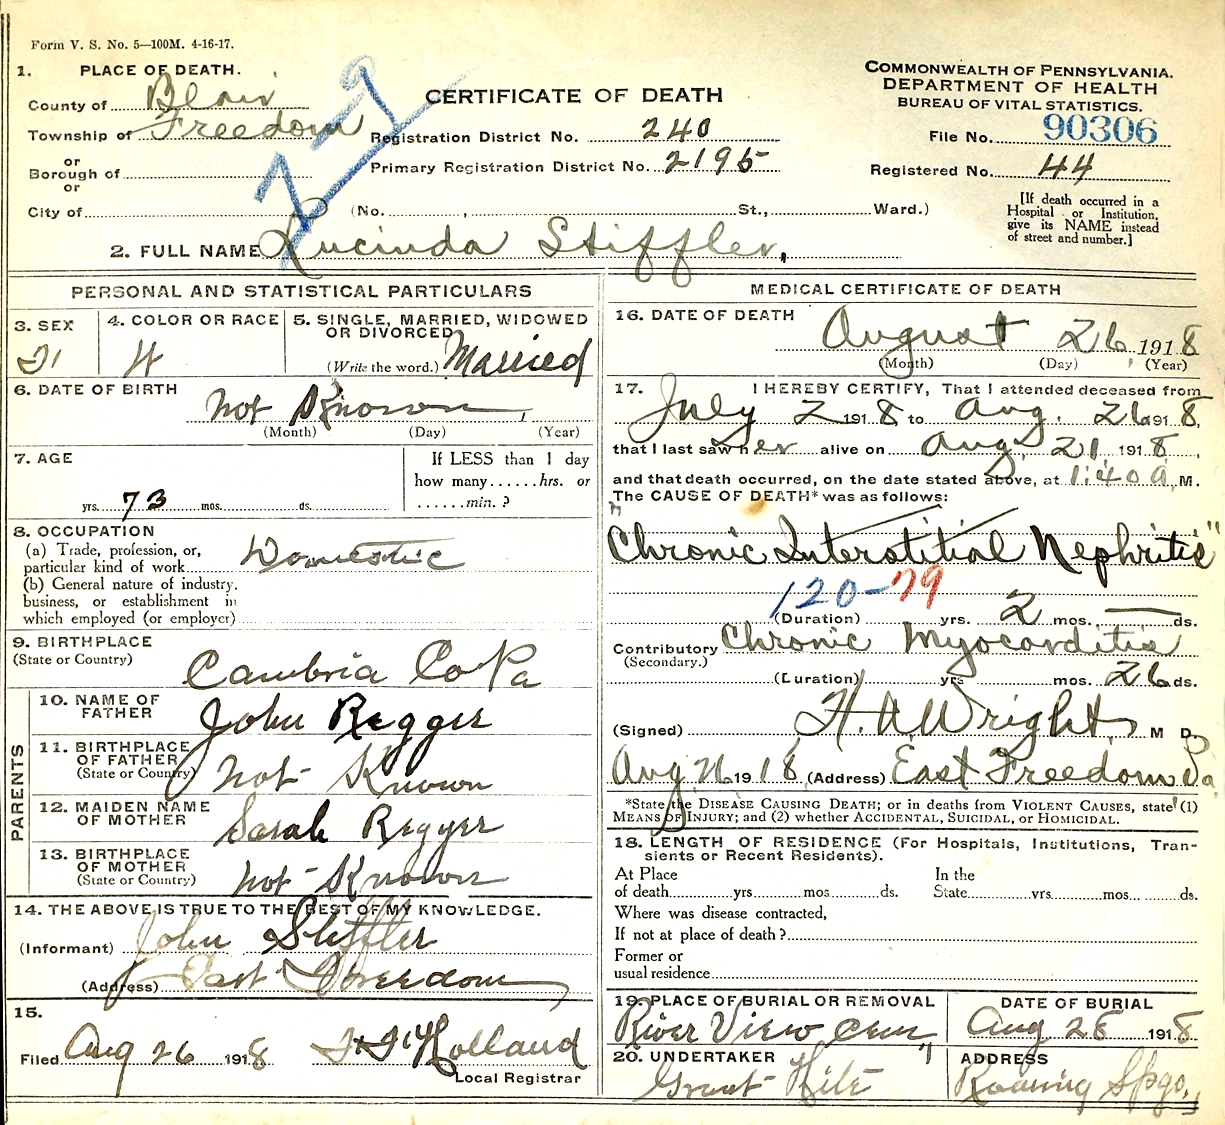 Form V. S. No. 5—100M. 4-16-17.
1. PLACE OF DEATH.
County of Blair
Township of Freedom
or
Borough of
or
City of
CERTIFICATE OF DEATH
Registration District No. 240
Primary Registration District No. 2195
(No. , St., Ward.)
COMMONWEALTH OF PENNSYLVANIA.
DEPARTMENT OF HEALTH
BUREAU OF VITAL STATISTICS.
File No. 90306
Registered No. 44
[If death occurred in a
Hospital or Institution,
give its NAME instead
of street and number.]
2. FULL NAME Lucinda Stiffler,
PERSONAL AND STATISTICAL PARTICULARS
3. SEX
F
4. COLOR OR RACE
W
5. SINGLE, MARRIED, WIDOWED
OR DIVORCED
(Write the word.) Married
6. DATE OF BIRTH
not Known,
(Month) (Day) (Year)
7. AGE
73 yrs. mos. ds.
If LESS than 1 day
how many......hrs. or
......min. ?
8. OCCUPATION
(a) Trade, profession, or,
particular kind of work Domestic
(b) General nature of industry.
business, or establishment in
which employed (or employer)
9. BIRTHPLACE
(State or Country)
Cambria Co Pa
PARENTS
10. NAME OF
FATHER
John Regger
11. BIRTHPLACE
OF FATHER
(State or Country)
not Known
12. MAIDEN NAME
OF MOTHER
Sarah Regger
13. BIRTHPLACE
OF MOTHER
(State or Country)
not Known
14. THE ABOVE IS TRUE TO THE BEST OF MY KNOWLEDGE.
(Informant) John Stiffler
(Address) East Freedom
15.
Filed Aug 26 1918 Holland
Local Registrar
MEDICAL CERTIFICATE OF DEATH
16. DATE OF DEATH
August 26 1918
(Month) (Day) (Year)
17. I HEREBY CERTIFY, That I attended deceased from
July 2 1918 to Aug. 26 1918,
that I last saw her alive on Aug 21 1918,
and that death occurred, on the date stated above, at 1:40 a M.
The CAUSE OF DEATH* was as follows:
"Chronic Interstitial Nephritis"
120-79
(Duration) yrs. 2 mos. — ds.
Contributory Chronic Myocarditis
(Secondary.)
(Duration) yrs mos. 26 ds.
(Signed) H. A Wright, M D.
Aug 26 1918 (Address) East Freedom Pa.
*State the DISEASE CAUSING DEATH; or in deaths from VIOLENT CAUSES, state (1)
MEANS OF INJURY; and (2) whether ACCIDENTAL, SUICIDAL, or HOMICIDAL.
18. LENGTH OF RESIDENCE (For Hospitals, Institutions, Tran-
sients or Recent Residents).
At Place In the
of death yrs. mos ds. State yrs. mos ds.
Where was disease contracted,
If not at place of death?
Former or
usual residence
19. PLACE OF BURIAL OR REMOVAL
River View Cem
DATE OF BURIAL
Aug 28 1918
20. UNDERTAKER
Grant Hite
ADDRESS
Roaring Spgs,